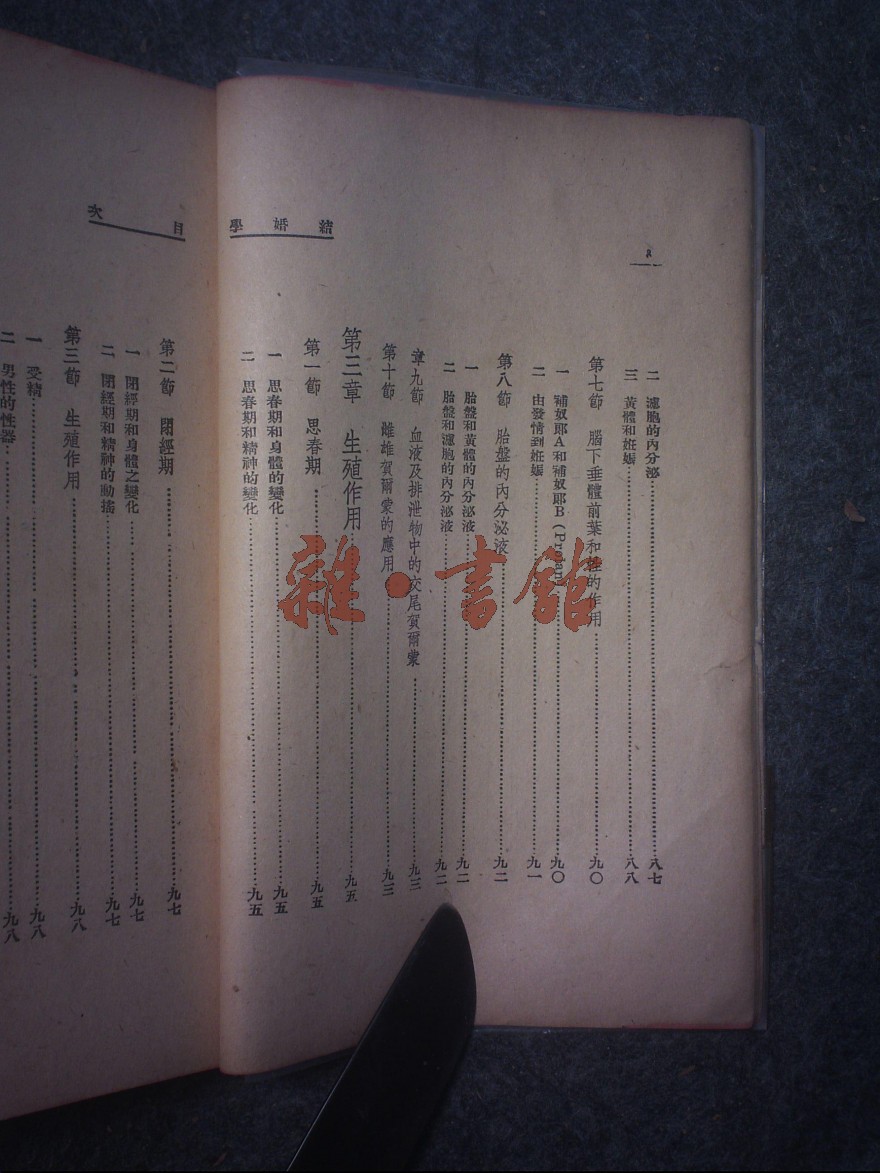 8
結婚學
二 濾胞的內分泌……八七
三 黃體和姙娠……八八
第七節 腦下垂體前葉和 的作用……九〇
一 補奴耶A和補奴耶B(Pr……九〇
二 由發情到姙娠……九一
第八節 胎盤的內分泌液……九二
一 胎盤和黃體的內分泌液……九二
二 胎盤和濾胞的內分泌液……九二
章九節 血液及排泄物中的交尾賀爾蒙……九三
第十節 雌雄賀爾蒙的應用……九三
第三章 生殖作用……九五
第一節 思春期……九五
一 思春期和身體的變化……九五
二 思春期和精神的變化……九五
目次
第二節 閉經期……九七
一 閉經期和身體之變化……九七
二 閉經期和精神的動搖……九七
第三節 生殖作用……九八
一 受精……九八
二 男性的性器……九八
雜·書館